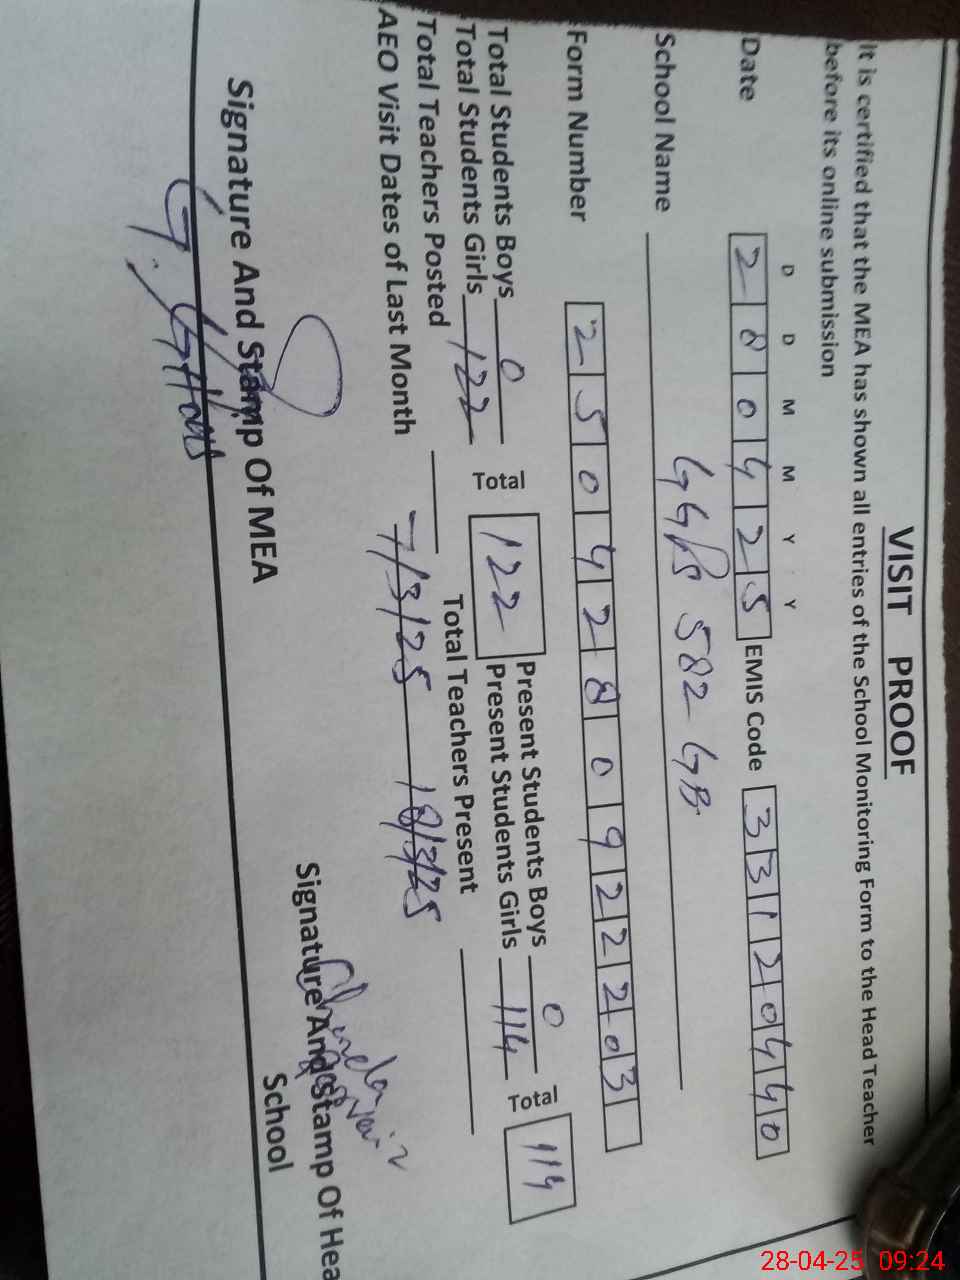 VISIT PROOF
It is certified that the MEA has shown all entries of the School Monitoring Form to the Head Teacher
before its online submission
D D M M Y Y
Date 2 8 0 4 2 5 EMIS Code 3 3 1 2 0 4 4 0
School Name GGPS 582 GB
Form Number 2 5 0 4 2 8 0 9 2 2 2 0 3
Total Students Boys 0 Total 122 Present Students Boys 0 Total 114
Total Students Girls 122 Present Students Girls 114
Total Teachers Posted Total Teachers Present
AEO Visit Dates of Last Month 7/3/25 18/3/25
Signature And Stamp Of MEA
Signature And Stamp Of Hea
School
28-04-25 09:24